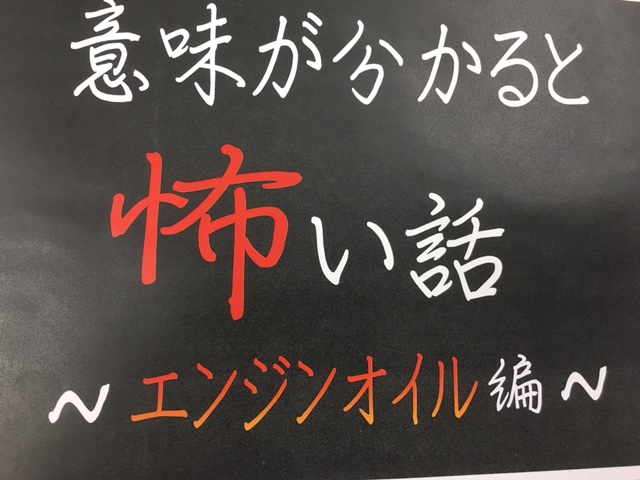 意味が分かると
怖い話
～エンジンオイル編～